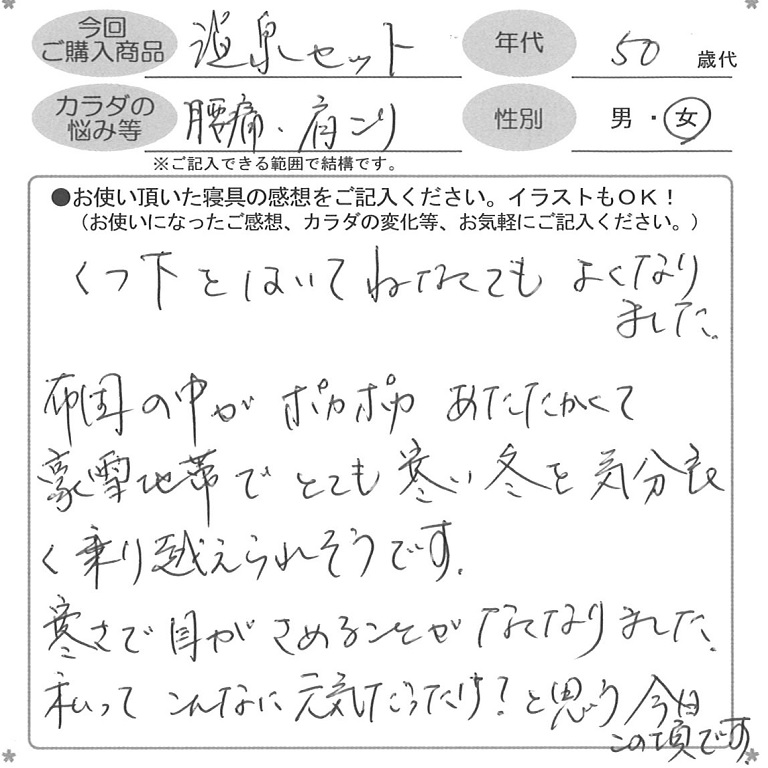 今回
ご購入商品 温泉セット 年代 50 歳代
カラダの
悩み等 腰痛・肩こり 性別 男・女
※ご記入できる範囲で結構です。
●お使い頂いた寝具の感想をご記入ください。イラストもOK！
（お使いになったご感想、カラダの変化等、お気軽にご記入ください。）
くつ下をはいてねなくてもよくなり
ました。
布団の中がポカポカあたたかくて
豪雪地帯でとても寒い冬を気分良
く乗り越えられそうです。
寒さで目がさめることがなくなりました。
私ってこんなに元気だったけ？と思う今日
この頃です。